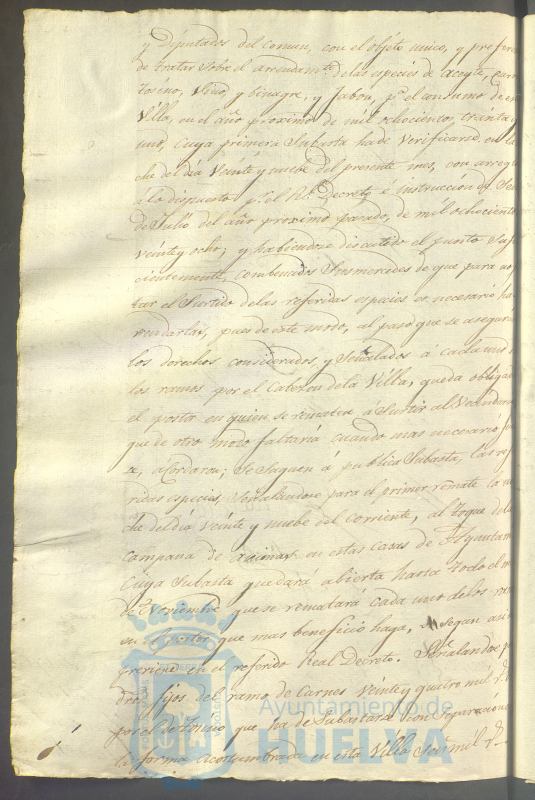 y Diputados del Comun, con el objeto unico, y prefer
de tratar sobre el arrendamto. de las especies de aceyte,
tocino, Vino y binagre, y Jabon, pa. el consumo de es
Villa, en el año proximo de mil ochocientos, treinta y
uno, cuya primera Subasta ha de verificarse en la
che del dia Veinte y nuebe del presente mes, con arreg
á lo dispuesto pr. el Rl. Decreto é instruccion de
de Julio del año proximo pasado, de mil ochociento
veinte y ocho; y habiendose discutido el punto Sufi
cientemente, combenidos Susmercedes de que para
el Surtido de las referidas especies es necesario
rendarlas, pues de este modo, al paso que se asegura
los derechos considerados, y Señalados á cada uno
los ramos por el Cabezon de la Villa, queda obliga
el postor en quien se rematen á Surtir al Vecindar
que de otro modo faltaria cuando mas necesario
a, acordaron; Se Saquen á publica Subasta, las ref
ridas especies, Señalandose para el primer remate la no
che del dia veinte y nuebe del corriente, al toque de la
campana de animas en estas casas de Ayuntam
Cuya Subasta quedará abierta hasta todo el m
de Noviembre que se rematará cada uno de los ra
en el postor que mas beneficio haga, segun asi
previene en el referido Real Decreto. Señalandose p
dros. fijos del ramo de Carnes Veinte y quatro mil rs.
por el de tocino que ha de Subastarse con Separacion
la forma acostumbrada en esta Villa Seis mil rs.
Ayuntamiento de
HUELVA